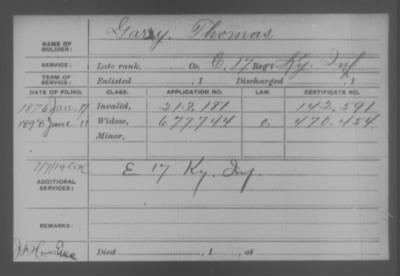 Garry, Thomas
NAME OF SOLDIER:
SERVICE: Late rank, Co. C, 17 Reg't Ky. Inf
TERM OF SERVICE: Enlisted , 1 Discharged , 1
DATE OF FILING. CLASS. APPLICATION NO. LAW. CERTIFICATE NO.
1876 Jan. 17 Invalid, 213,181 142,591
1898 June 11 Widow, 677744 470,454
Minor,
ADDITIONAL SERVICES: E 17 Ky. Inf.
REMARKS:
Died , 1 , at